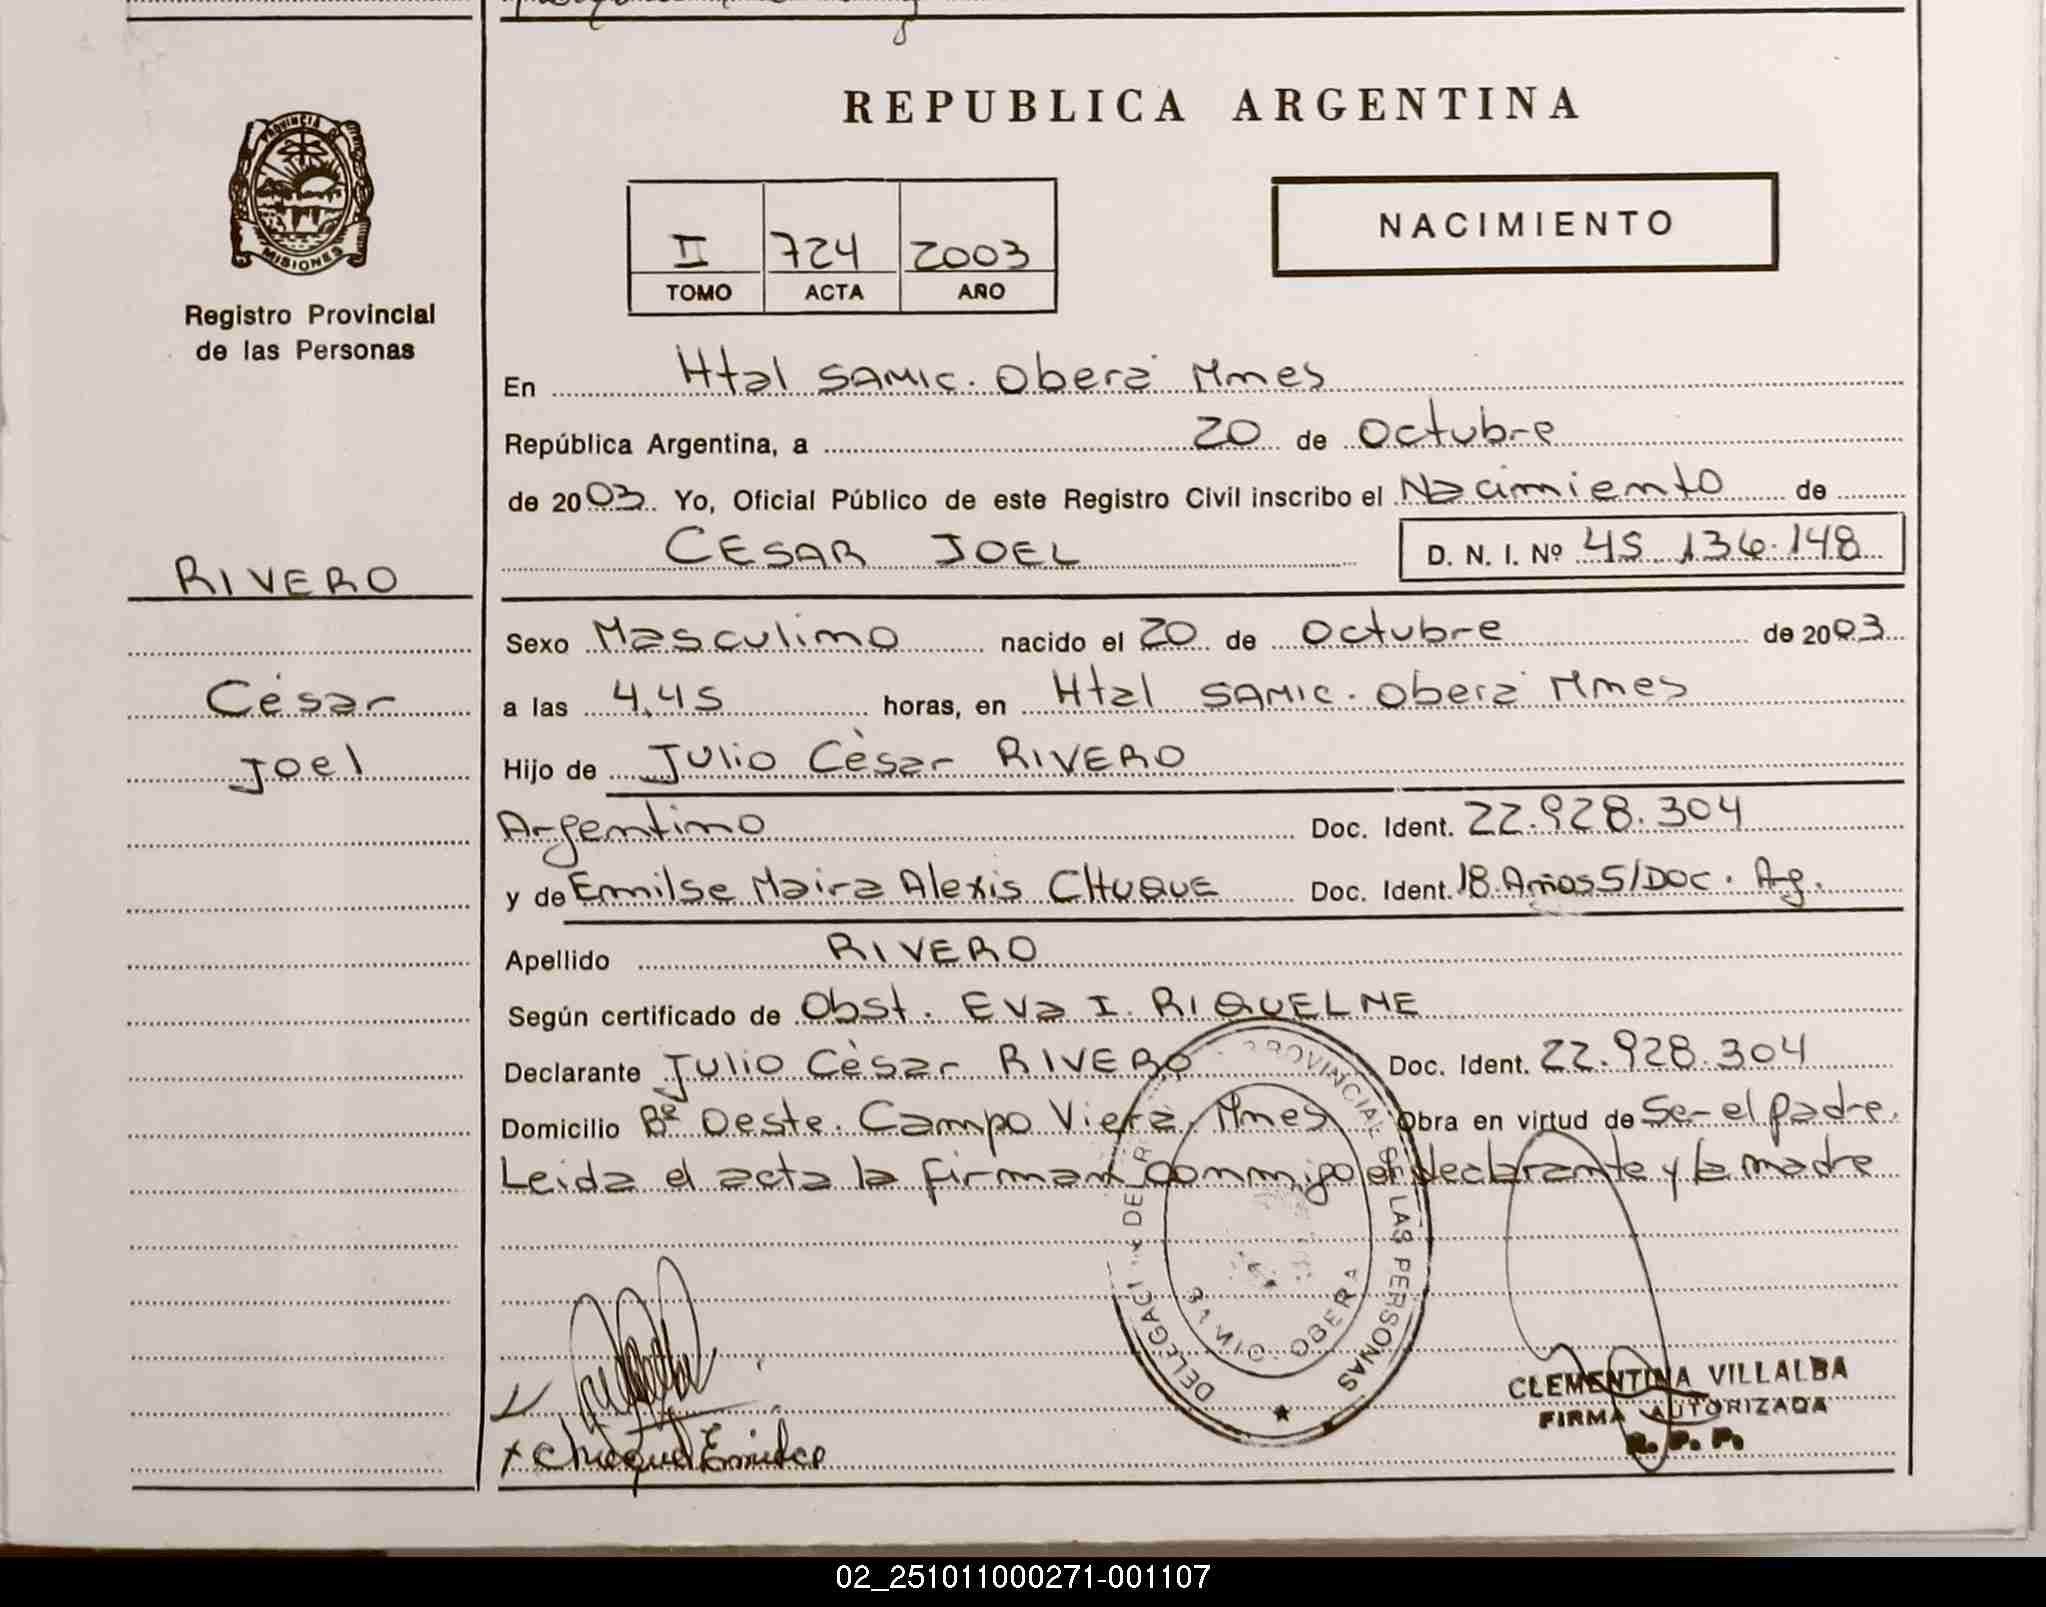 REPUBLICA ARGENTINA
PROVINCIA DE
MISIONES
Registro Provincial
de las Personas
II 724 2003
TOMO ACTA AÑO
NACIMIENTO
En Htal SAMIC. Oberá Mnes
República Argentina, a 20 de Octubre
de 2003. Yo, Oficial Público de este Registro Civil inscribo el Nacimiento de
CESAR JOEL D. N. I. Nº 45.136.148
RIVERO
César
Joel
Sexo Masculino nacido el 20 de Octubre de 2003
a las 4.45 horas, en Htal SAMIC. Oberá Mnes
Hijo de Julio Cèsar RIVERO
Argentino Doc. Ident. 22.928.304
y de Emilse Maira Alexis CHUQUE Doc. Ident. 18 Años S/DOC. Ag.
Apellido RIVERO
Según certificado de Obst. Eva I. RIQUELME
Declarante Julio Cèsar RIVERO Doc. Ident. 22.928.304
Domicilio Bº Oeste. Campo Viera, Mnes Obra en virtud de Ser el padre.
Leida el acta la firman conmigo el declarante y la madre
PROVINCIAL DE LAS PERSONAS
OBERA
CLEMENTINA VILLALBA
FIRMA AUTORIZADA
R. P. P.
x Chuque Emilse
02_251011000271-001107